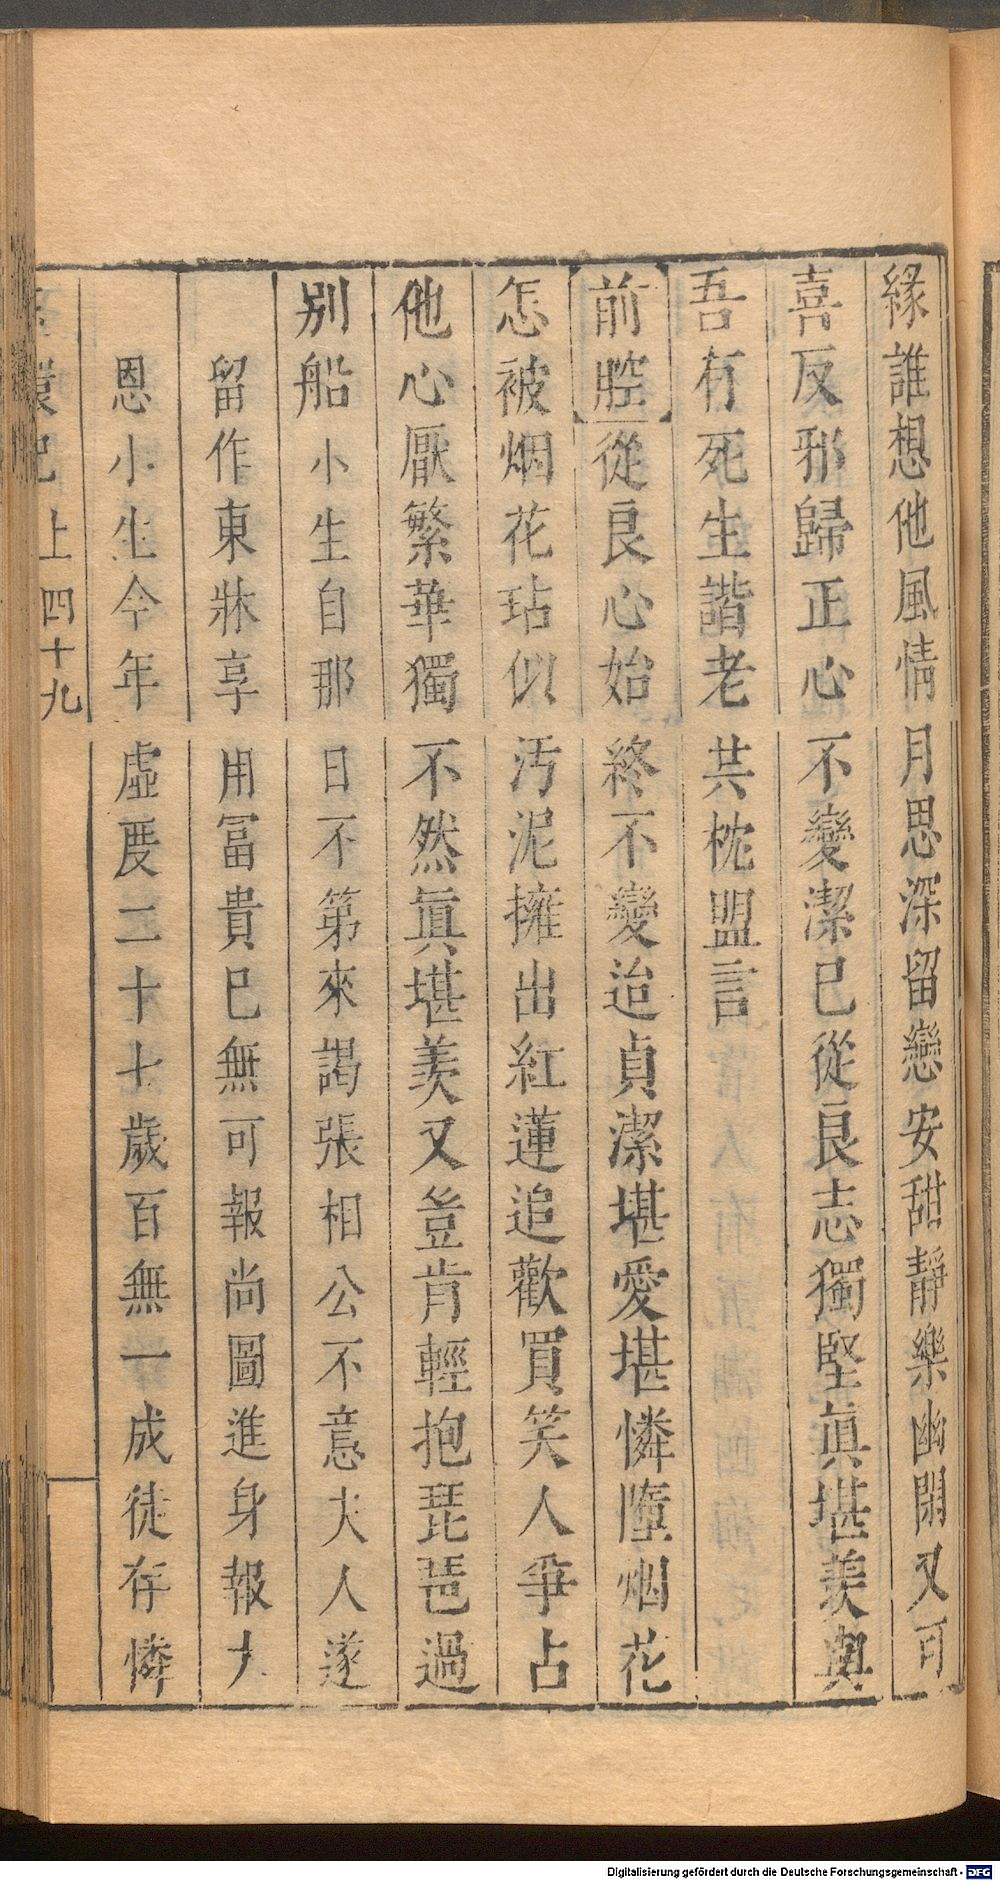 緣誰想他風情月思深留戀安甜靜樂幽閑又可
喜反邪歸正心不變潔已從良志獨堅眞堪羡與
吾有死生諧老共枕盟言
前腔從良心始終不變迨貞潔堪愛堪憐墮烟花
怎被烟花玷似汚泥擁出紅蓮追歡買笑人爭占
他心厭繁華獨不然眞堪羨又豈肯輕抱琵琶過
別船小生自那日不第來謁張相公不意夫人遂
留作東牀享用富貴已無可報尚圖進身報大
恩小生今年虛度二十七歲百無一成徒存憐
環記 上 四十九
Digitalisierung gefördert durch die Deutsche Forschungsgemeinschaft - DFG